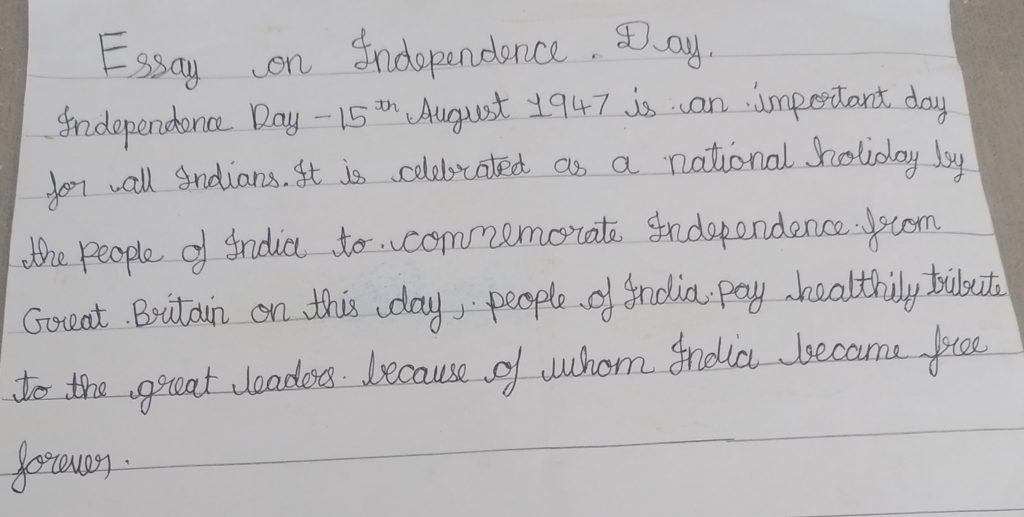 Essay on Independence. Day.
Independence Day - 15th August 1947 is an important day
for all Indians. It is celebrated as a national holiday by
the people of India to commemorate Independence from
Great Britain on this day, people of India pay healthily tribute
to the great leaders because of whom India became free
forever.